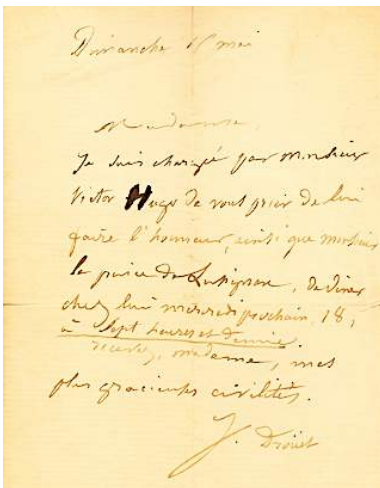 Dimanche 15 mai
Madame,
Je suis chargée par monsieur
Victor Hugo de vous prier de lui
faire l'honneur, ainsi que monsieur
le prince de Lusignan, de diner
chez lui mercredi prochain, 18,
à sept heures et demie.
recevez, madame, mes
plus gracieuses civilités.
J. Drouet